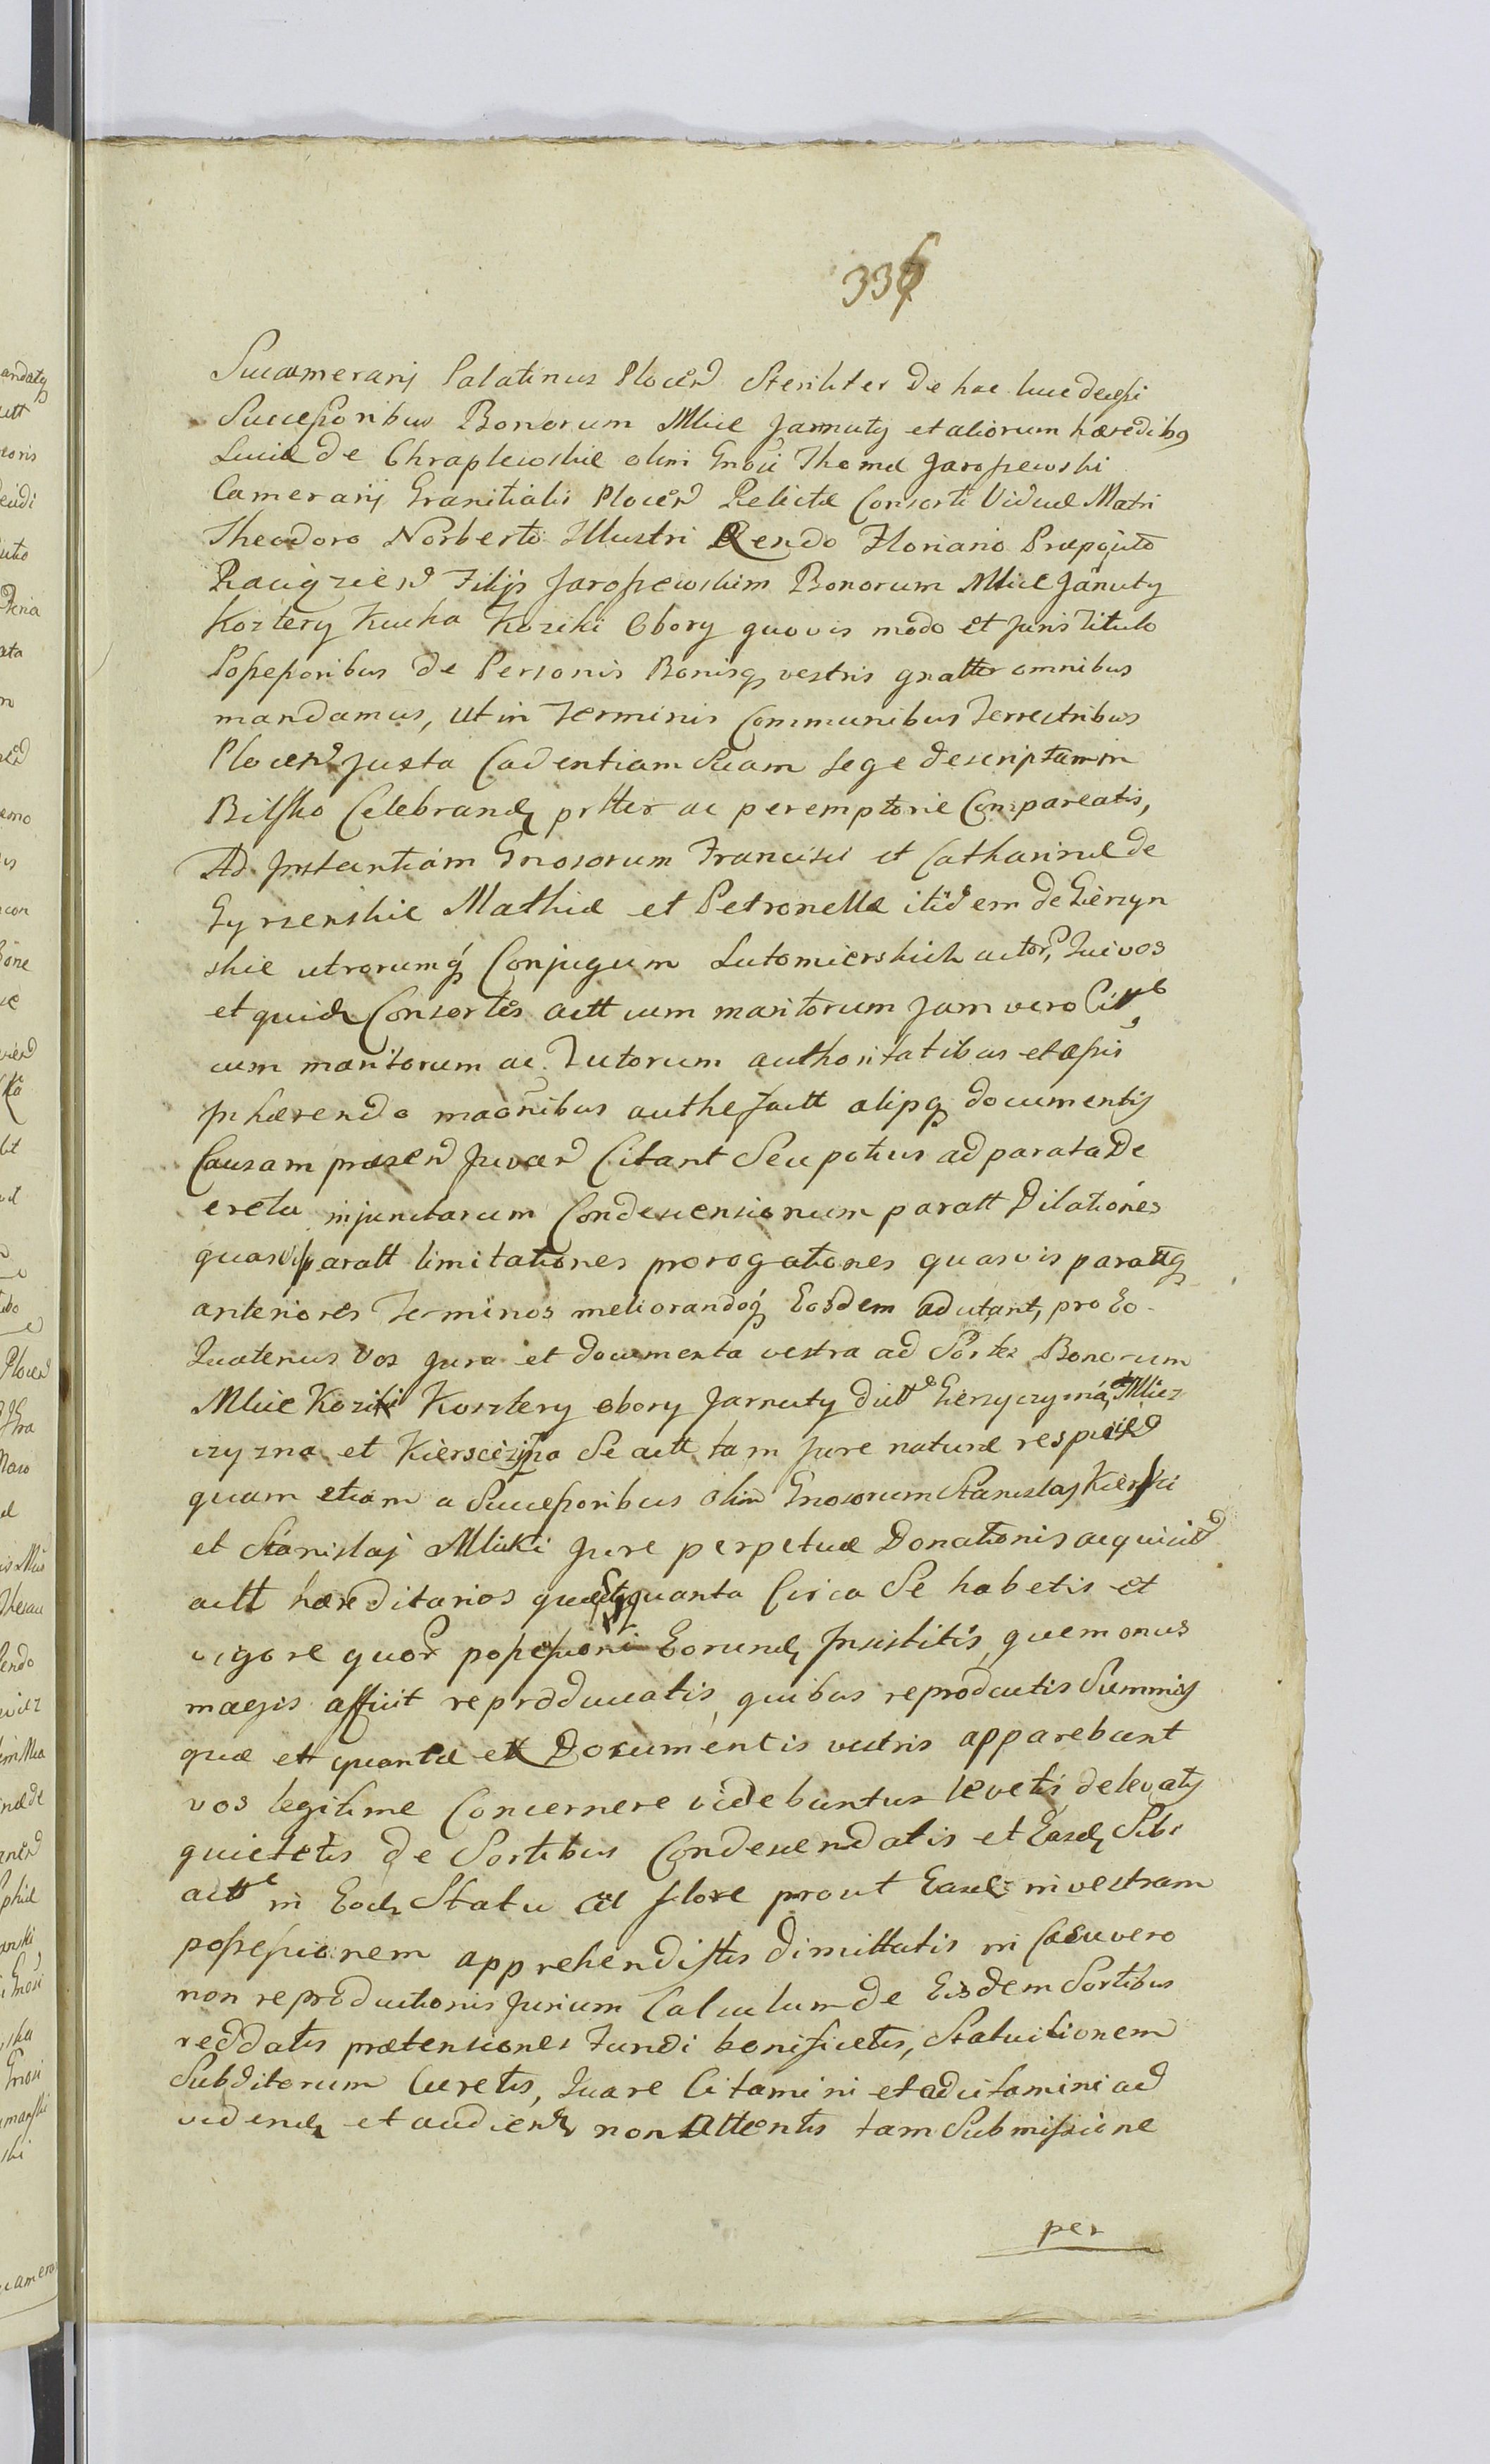 336
Succamerarij Palatinus Plocen Steriliter de hac luce decessi
Successoribus Bonorum Mlice Jarnuty et aliorum hæredibq
Lucia de Chraplewskie olim Gnosi Thomæ Jaroszewski
Camerarij Granitialis Plocen Relictæ Consorti Viduæ Matri
Theodoro Norberto Illustri Rendo Floriano Præposito
Raciązien Filijs Jaroszewskim Bonorum Mlice Januty
Kozlery Kucha Koziki Obory quovis modo et Juris Titulo
Possessoribus de Personis Bonisq vestris gnatter omnibus
mandamus, ut in Terminis Communibus Terrestribus
Plocen Juxta Cadentiam Suam Lege descriptam in
Bilsko Celebrand prtter ac peremptorie Compareatis,
Ad Instantiam Gnosorum Francisci et Catharinæ de
Gyrzenskie Mathiæ et Petronellæ itidem de Gierzyn
skie utrorumq Conjugum Lutomierskich actor, Qui vos
et quid Consortes actt cum maritorum Jam vero Citt
cum maritorum ac Tutorum authoritatibus et assis
Inhærendo maonibus authe Jactt alijsq documentis
Causam præsen Juvan Citant Seu potius ad parata De
creta injunctarum Condescensionum paratt Dilationes
quasvis paratt limitationes prorogationes quasvis parattq
anteriores Terminos meliorandoq Eosdem adcitant, pro Eo
Quatenus Vos Jura et documenta vestra ad Sortes Bonorum
Mlice Koziki Kozlery obory Jarnuty dict Gierzyczyzna, et Mlicz
czyzna et Kierscizna Se actt tam Jure naturæ respicien
quam etiam a Successoribus olim Gnosorum Stanislaj Kierski
et Stanislaj Mlicki Jure perpetuæ Donationis acquisit
actt hæreditarios quæcunq quanta Circa Se habetis et
vigore quor possessioni Eorund Insistitis, quem onus
magis afficit reproducatis, quibus reproductis Summis
quæ et quantæ ex Documentis vestris apparebunt
vos legitime Concernere videbuntur levetis, delevatis
quietetis de Sortibus Condescendatis et Easd Sibi
actt in Eod Statu ac flore prout Easd in vestram
possessionem apprehendistis dimittatis in Casu vero
non reproductionis Jurium Calculum de Eisdem Sortibus
reddatis prætensiones Fundi bonificetis, Statuitionem
Subditorum Curetis, Quare Citamini et adcitamini ad
vidend et audiend non Attentis tam Submissione
per